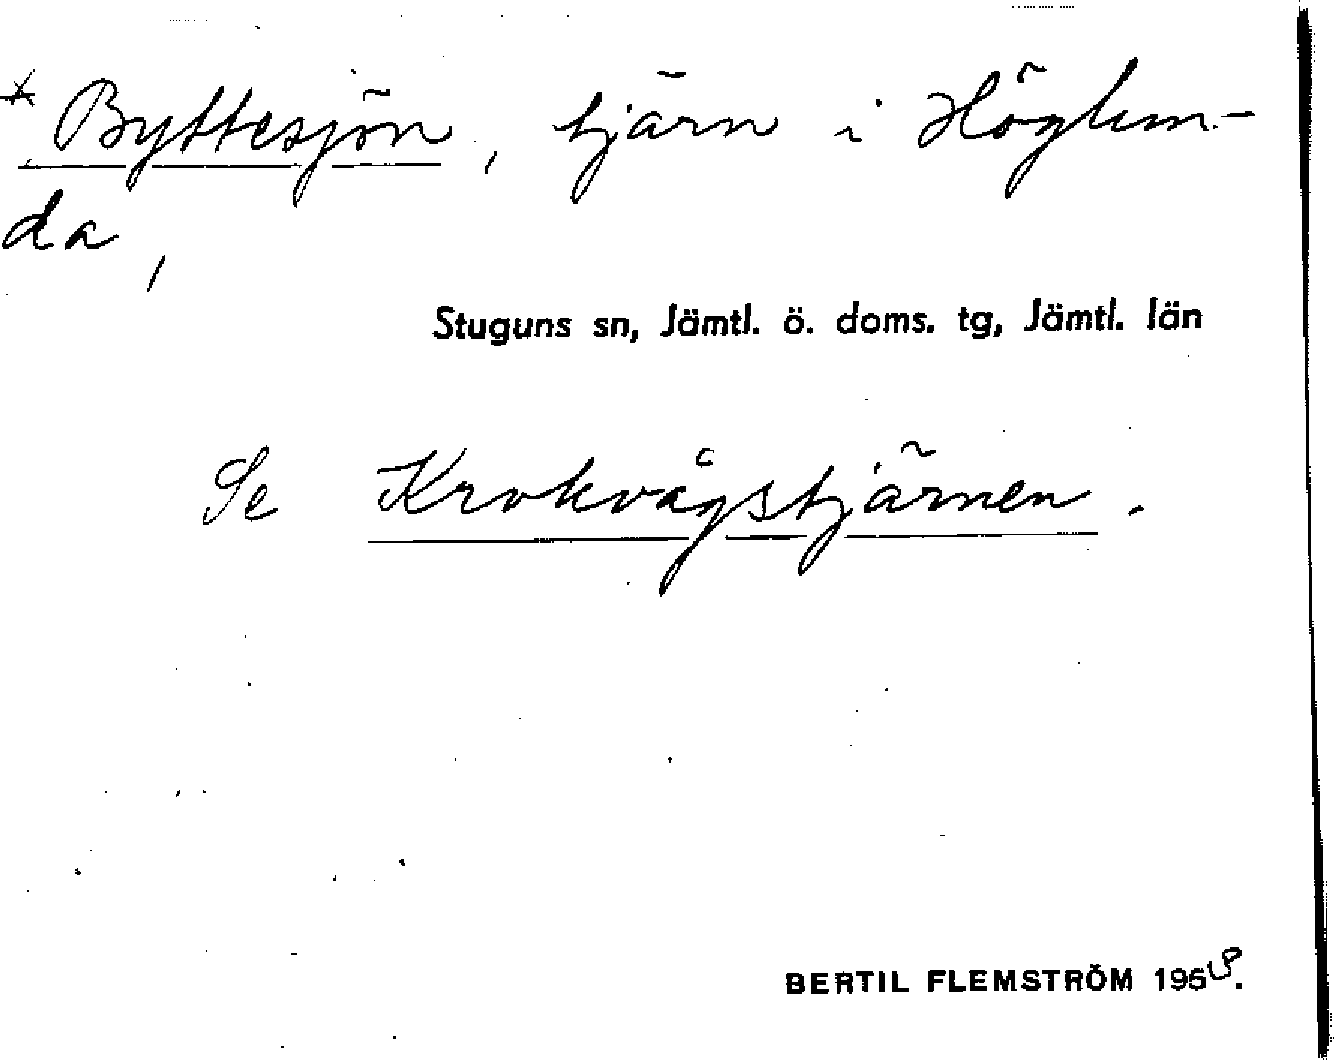 * Byttesjön, tjärn i Höglun-
da,
Stuguns sn, Jämtl. ö. doms. tg, Jämtl. län
Se Krokvågstjärnen.
BERTIL FLEMSTRÖM